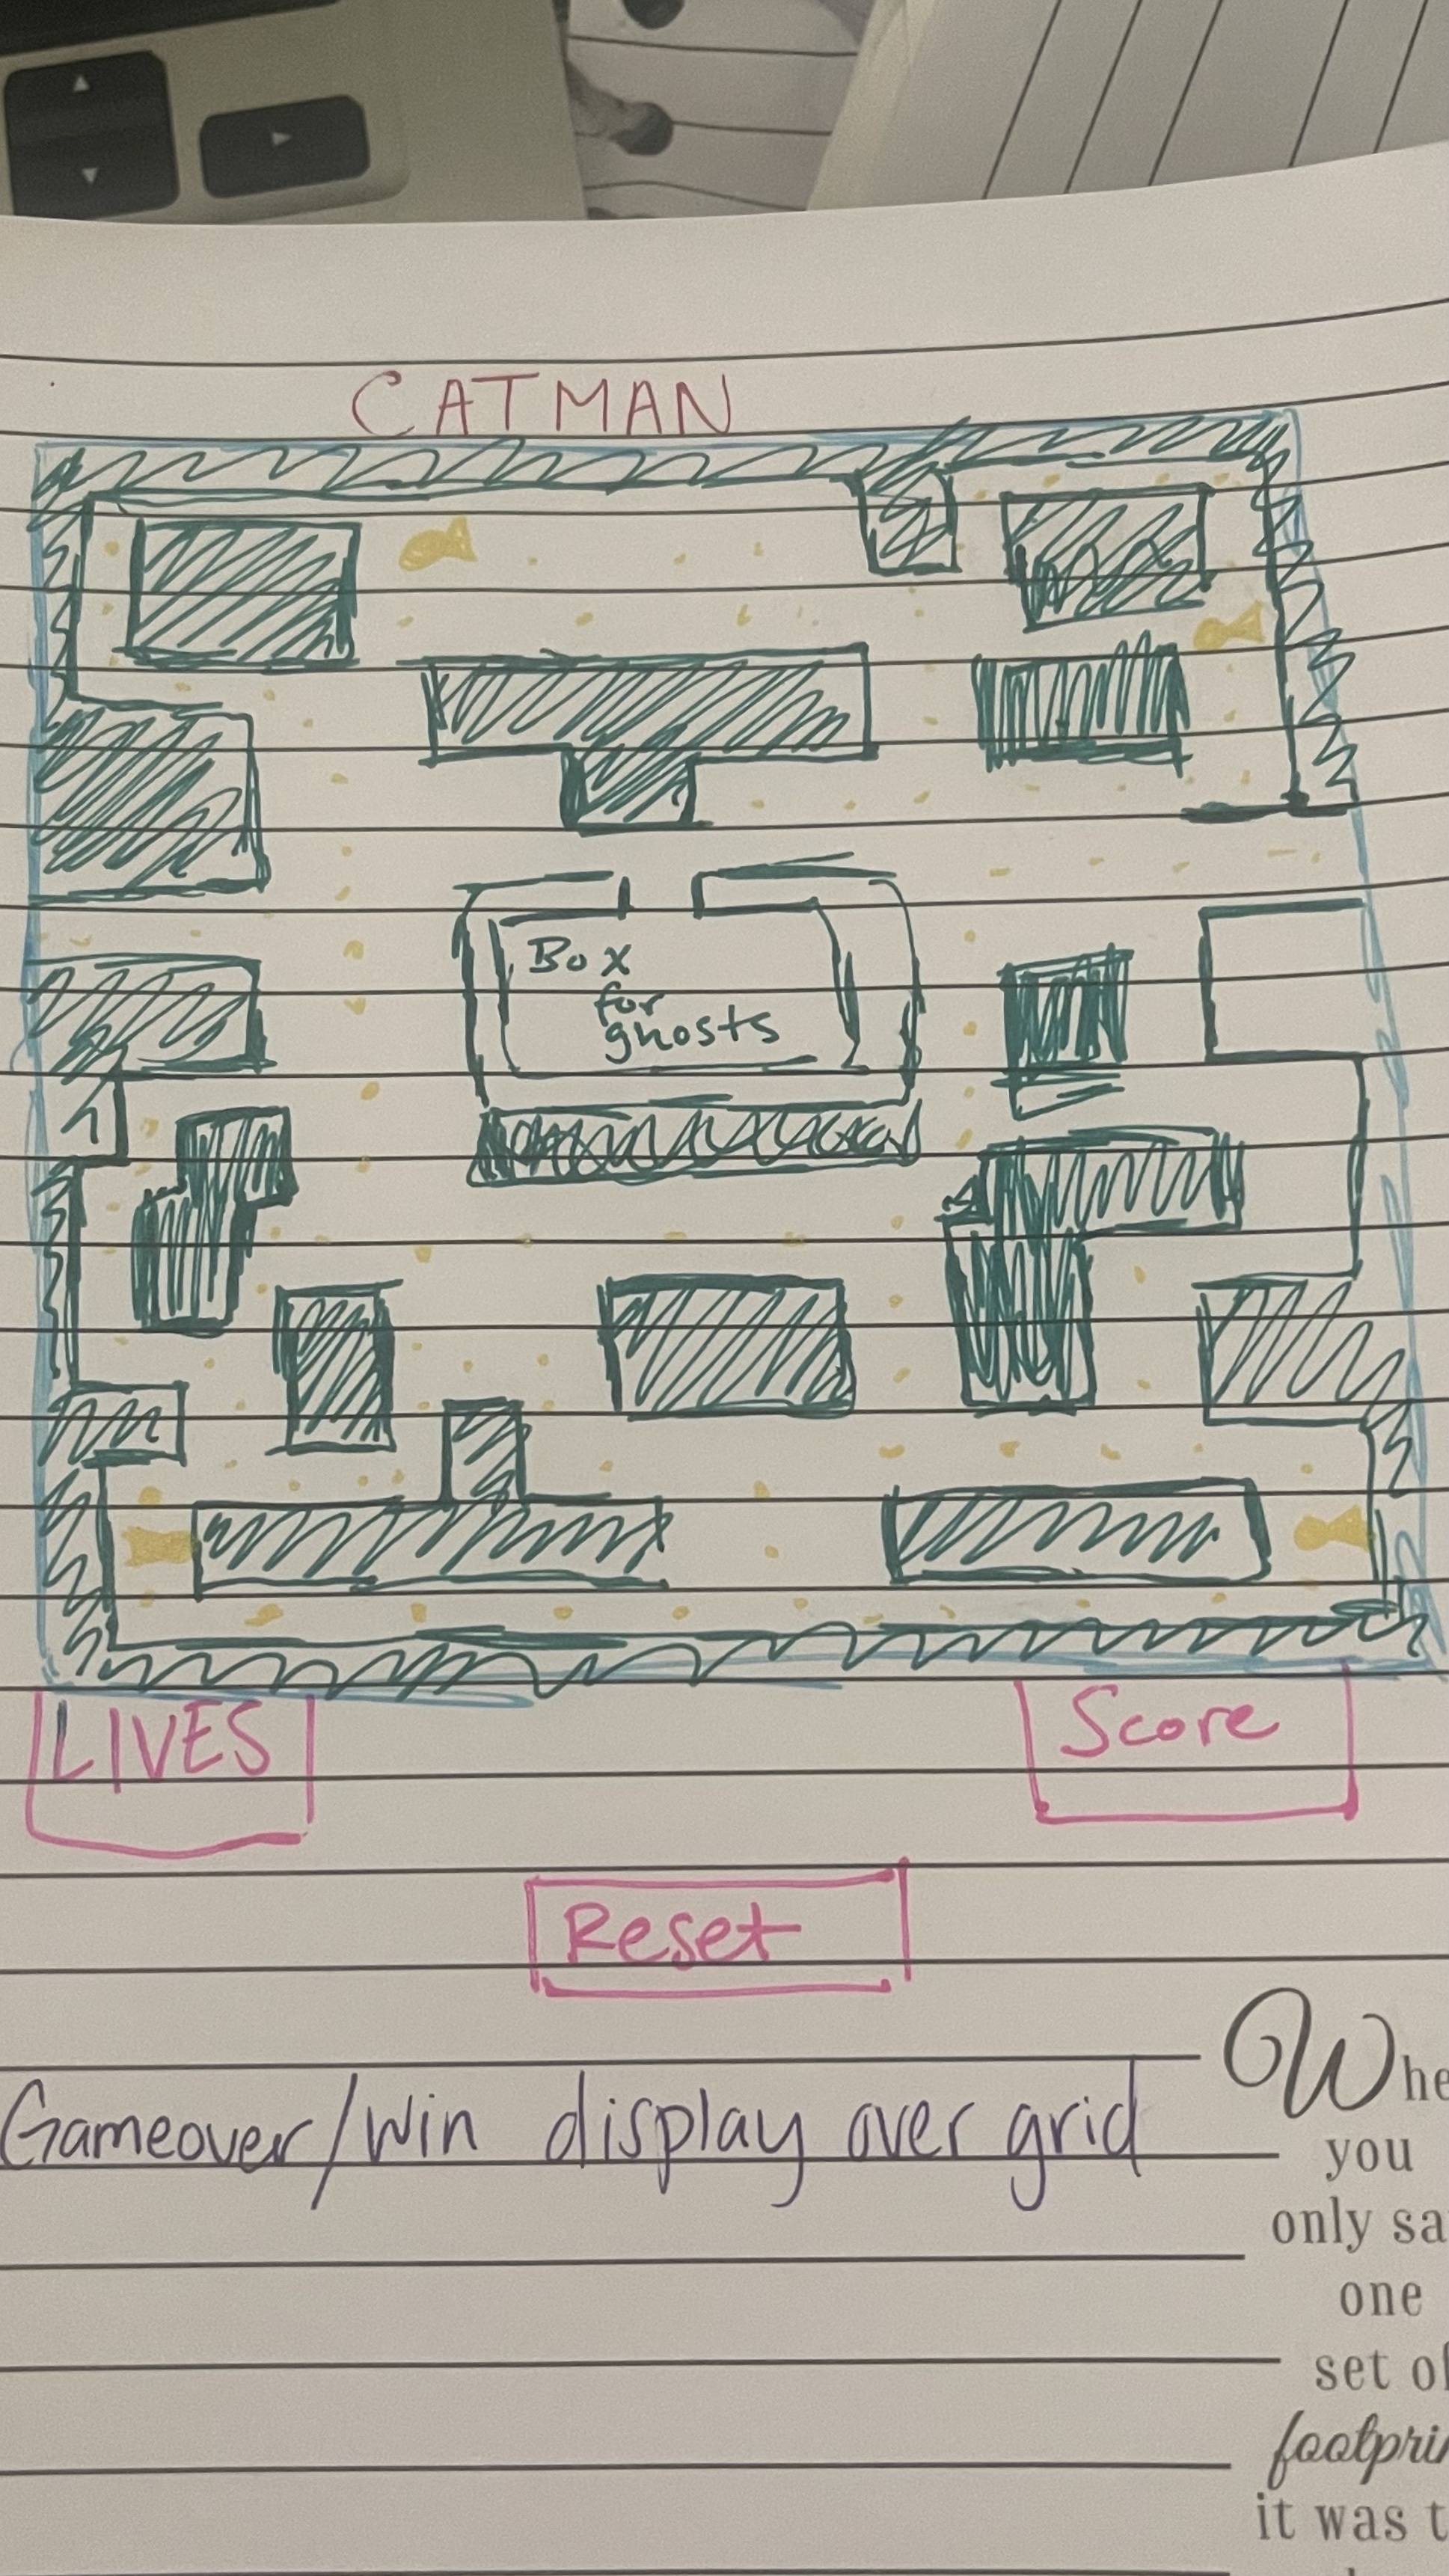 CATMAN
Box
for
ghosts
LIVES
Score
Reset
Gameover/Win display over grid
Whe
you
only sa
one
set of
footprin
it was t